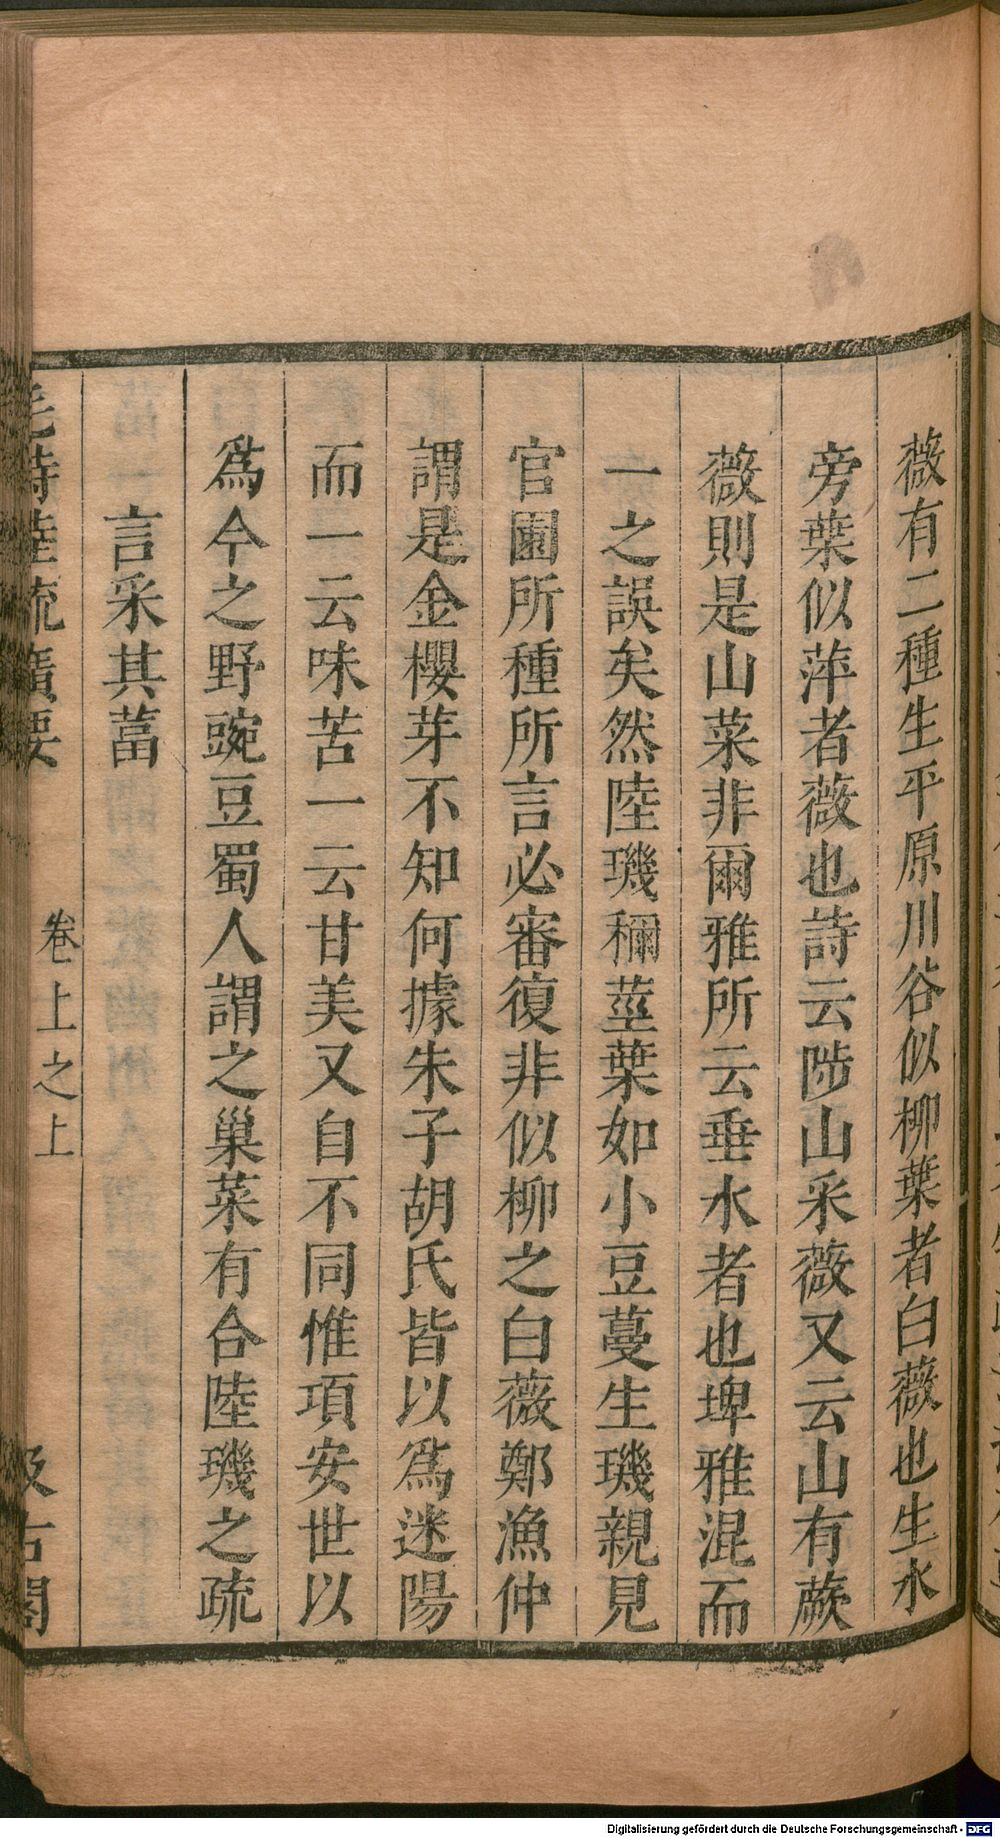 薇有二種生平原川谷似柳葉者白薇也生水
旁葉似萍者薇也詩云陟山采薇又云山有蕨
薇則是山菜非爾雅所云垂水者也埤雅混而
一之誤矣然陸璣稱莖葉如小豆蔓生璣親見
官園所種所言必審復非似柳之白薇鄭漁仲
謂是金櫻芽不知何據朱子胡氏皆以爲迷陽
而一云味苦一云甘美又自不同惟項安世以
爲今之野豌豆蜀人謂之巢菜有合陸璣之疏
言采其葍
毛詩陸疏廣要 卷上之上 汲古閣
Digitalisierung gefördert durch die Deutsche Forschungsgemeinschaft - DFG